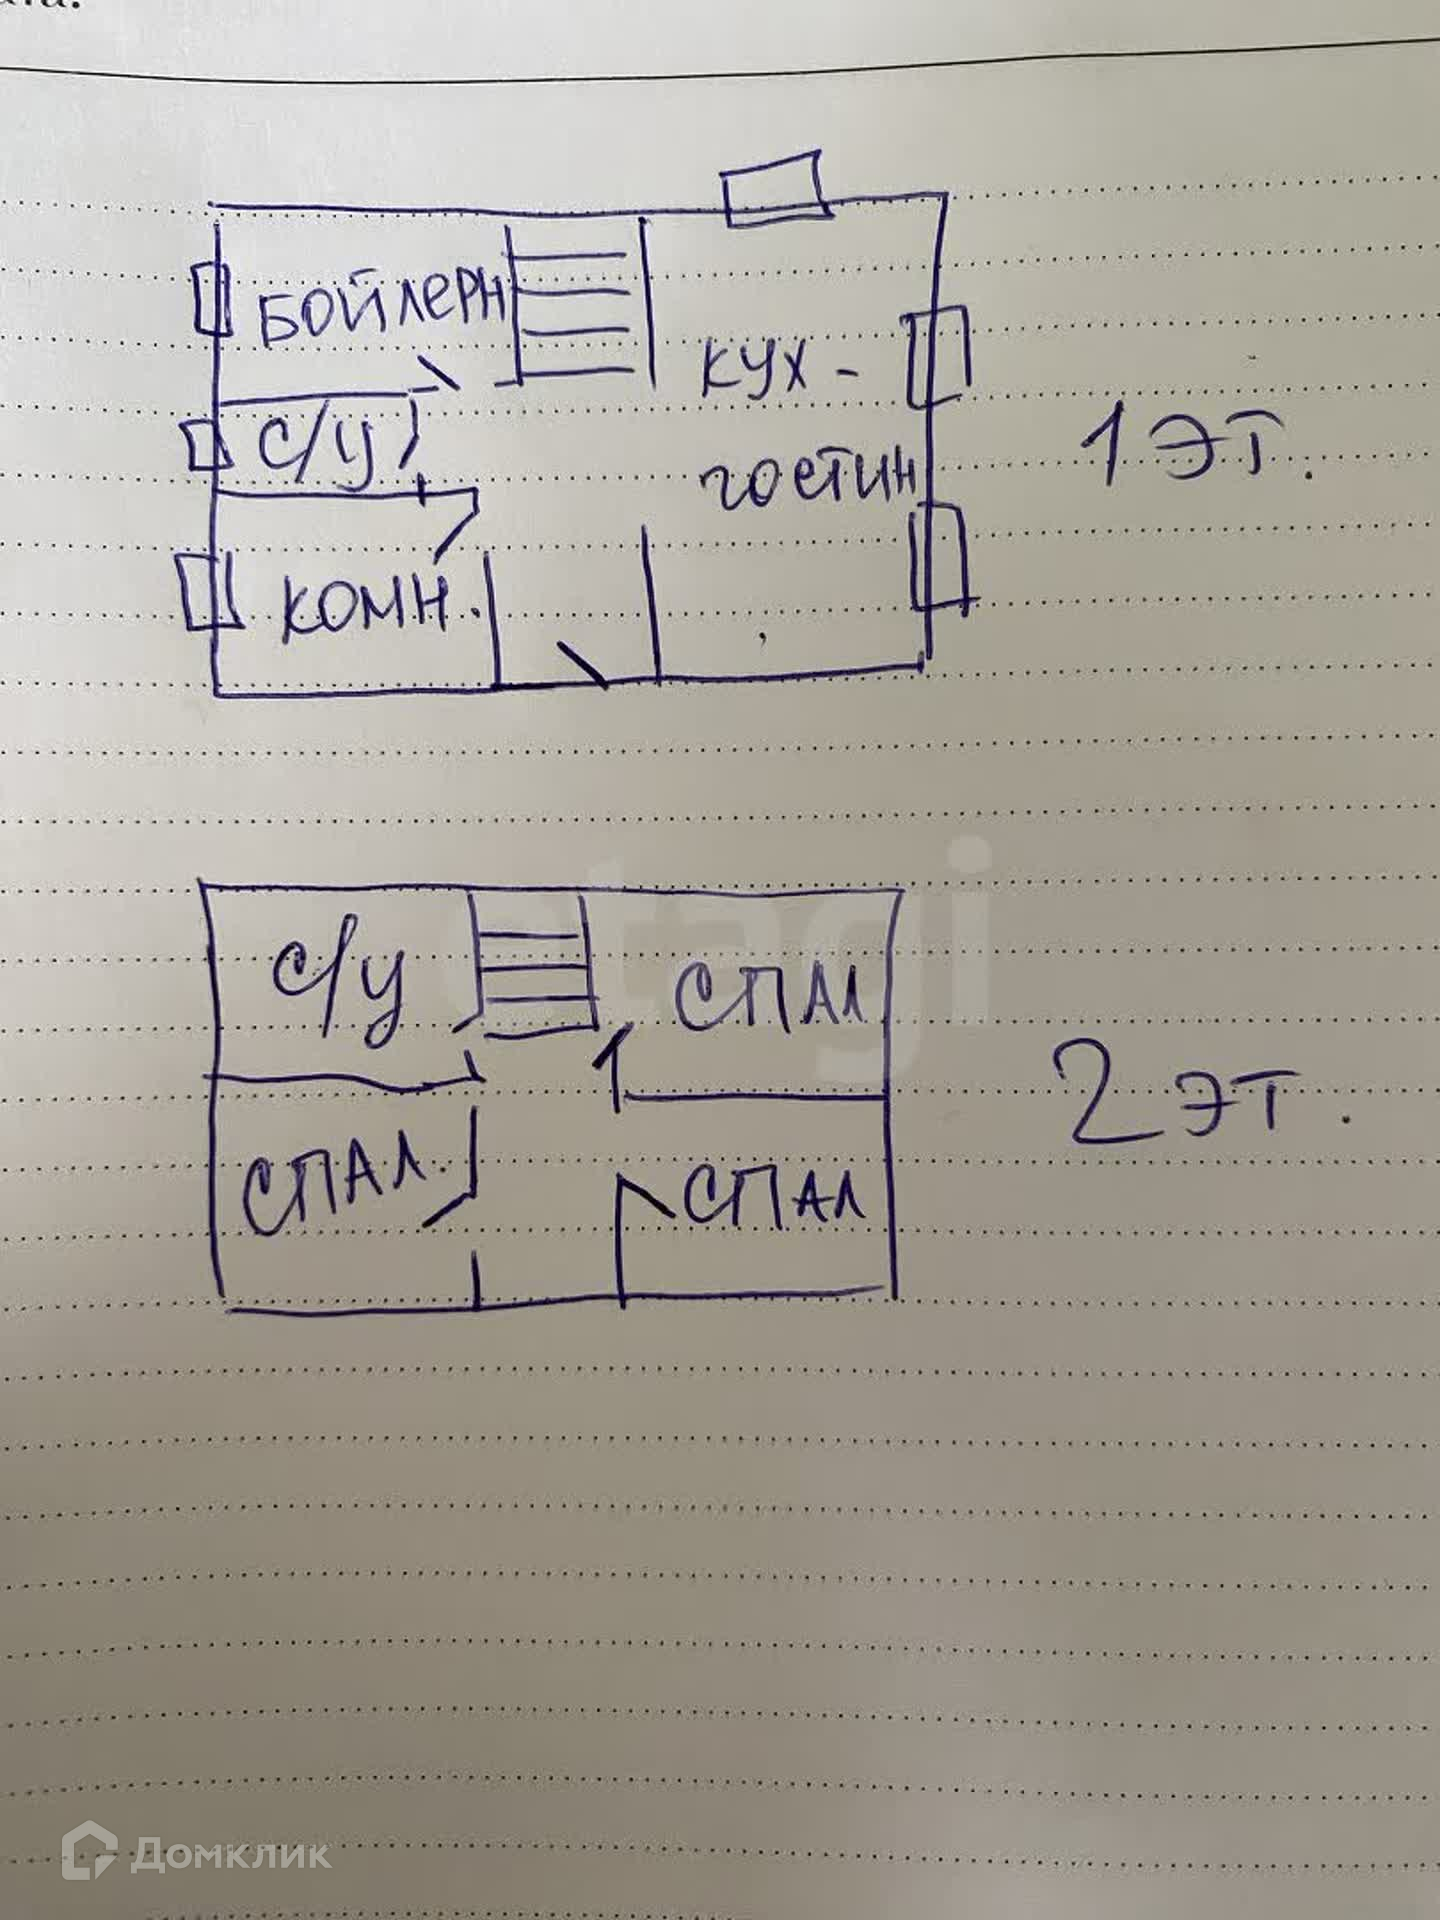 БОЙЛЕРН
КУХ -
С/У
ГОСТИН
1 ЭТ.
КОМН.
etagi
С/У
СПАЛ
2 ЭТ.
СПАЛ.
СПАЛ
Домклик